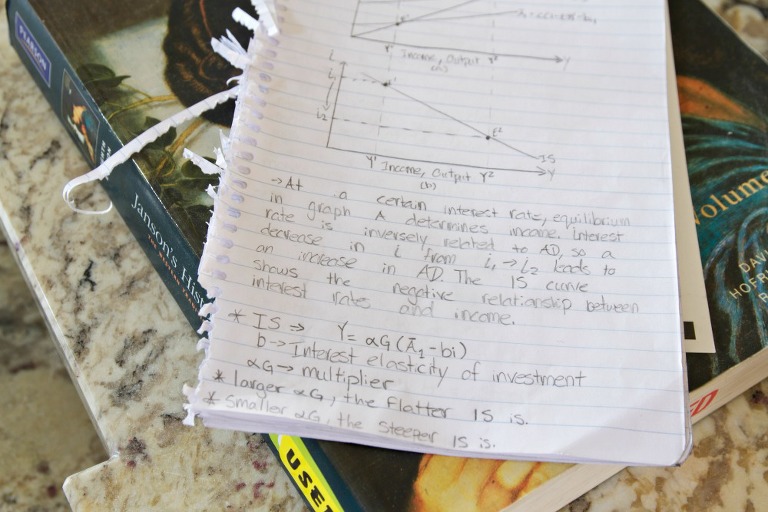 Y' Income, Output Y
(a)
i
i₁
E'
i₂
E²
IS
Y' Income, Output Y² Y
(b)
→At a certain interest rate, equilibrium
in graph A determines income. Interest
rate is inversely related to AD, so a
decrease in i from i₁ → i₂ leads to
an increase in AD. The IS curve
shows the negative relationship between
interest rates and income.
* IS ⇒ Y = αG (Ā₁ - bi)
b → Interest elasticity of investment
αG → multiplier
* larger αG, the flatter IS is.
* smaller αG, the steeper IS is.
PEARSON
Janson's Hist
USED
Volume
DAVI
HOFR